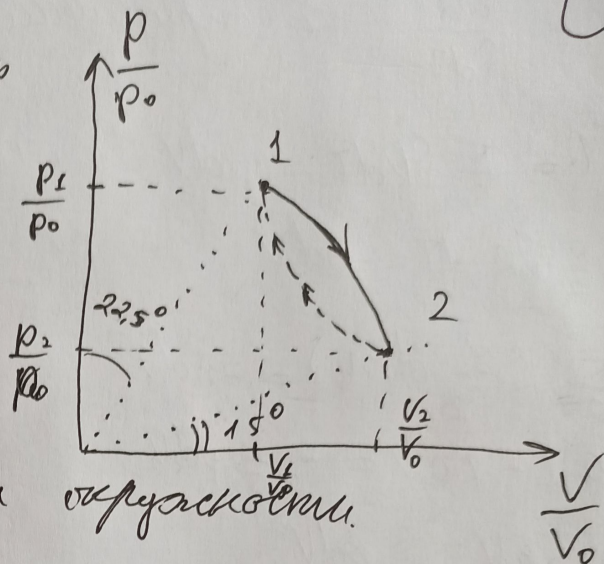 p/p₀
1
p₁/p₀
22,5°
2
p₂/p₀
15°
V₂/V₀
V₁/V₀
окружности.
V/V₀